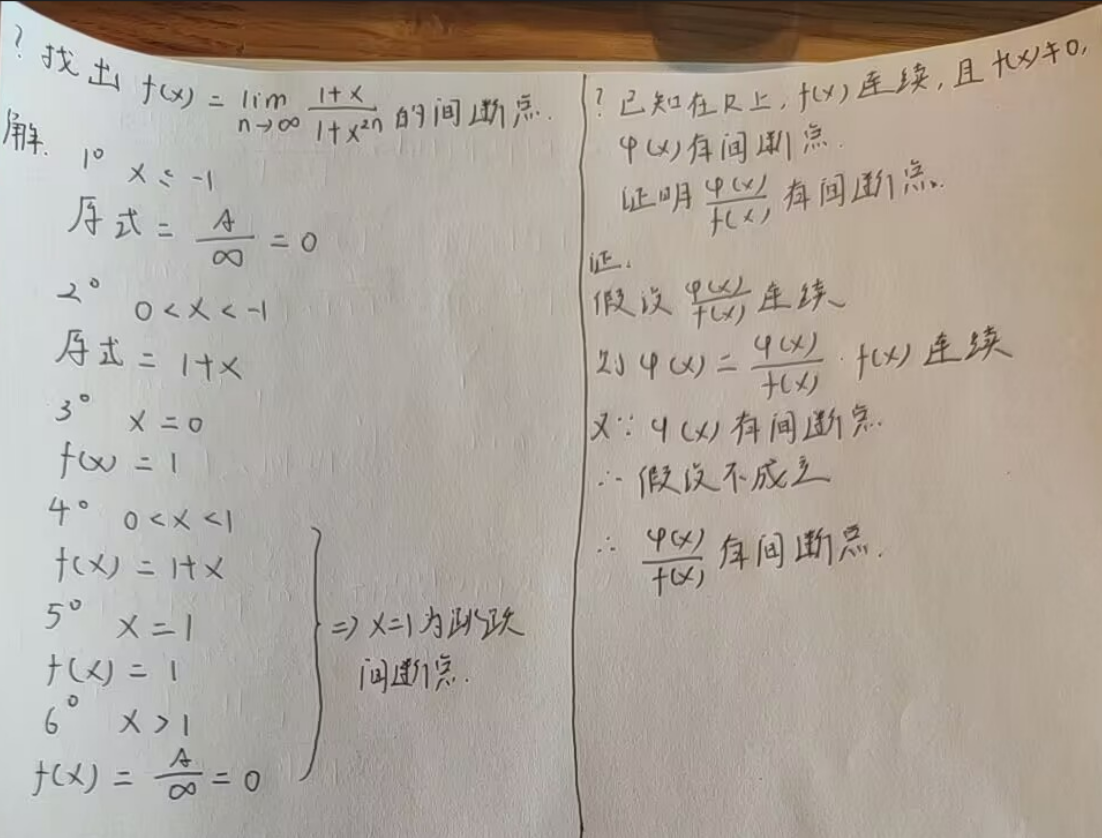 ? 找出 f(x) = lim n→∞ (1+x)/(1+x^2n) 的间断点.
解.
1° x ≤ -1
原式 = A/∞ = 0
2° 0 < x < -1
原式 = 1+x
3° x = 0
f(x) = 1
4° 0 < x < 1
f(x) = 1+x
5° x = 1
f(x) = 1
6° x > 1
f(x) = A/∞ = 0
⇒ x=1 为跳跃
间断点.
? 已知在R上, f(x) 连续, 且 f(x)≠0,
φ(x) 有间断点.
证明 φ(x)/f(x) 有间断点.
证.
假设 φ(x)/f(x) 连续
则 φ(x) = φ(x)/f(x) · f(x) 连续
又∵ φ(x) 有间断点.
∴ 假设不成立
∴ φ(x)/f(x) 有间断点.